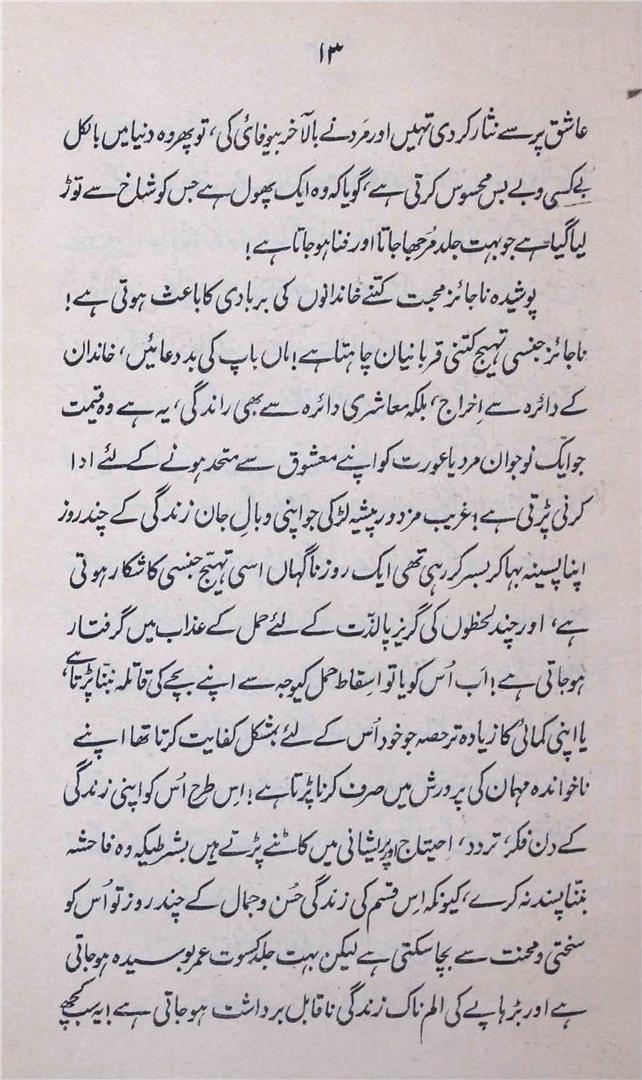 ۱۳
عاشق پر سے نثار کردی تہیں اور مَرد نے بالآخر بیوفائی کی، تو پھر وہ دنیا میں بالکل
بے کسی و بے بس محسوس کرتی ہے، گویا کہ وہ ایک پھول ہے جس کو شاخ سے توڑ
لیا گیا ہے جو بہت جلد مُرجھا جاتا اور فنا ہو جاتا ہے!
پوشیدہ ناجائز محبت کتنے خاندانوں کی بربادی کا باعث ہوتی ہے!
ناجائز جنسی تہیج کتنی قربانیان چاہتا ہے! ماں باپ کی بد دعائیں، خاندان
کے دائرہ سے اِخراج، بلکہ معاشری دائرہ سے بھی راندگی، یہ ہے وہ قیمت
جو ایک نوجوان مرد یا عورت کو اپنے معشوق سے متحد ہونے کے لئے ادا
کرنی پڑتی ہے! غریب مزدور پیشہ لڑکی جو اپنی وبالِ جان زندگی کے چند روز
اپنا پسینہ بہا کر بسر کر رہی تھی ایک روز ناگہاں اسی تہیج جنسی کا شکار ہوتی
ہے، اور چند لحظوں کی گریز پا لذّت کے لئے حمل کے عذاب میں گرفتار
ہو جاتی ہے! اَب اُس کو یا تو اسِقاط حمل کیوجہ سے اپنے بچے کی قاتلہ بننا پڑتا ہے،
یا اپنی کمائی کا زیادہ تر حصہ جو خود اُس کے لئے بمشکل کفایت کرتا تھا اپنے
ناخواندہ مہمان کی پرورش میں صرف کرنا پڑتا ہے! اِس طرح اُس کو اپنی زندگی
کے دن فکر، تردد، اِحتیاج اور پریشانی میں کاٹنے پڑتے ہیں بشرطیکہ وہ فاحشہ
بننا پسند نہ کرے، کیونکہ اِس قسم کی زندگی حُسن و جمال کے چند روز تو اُس کو
سختی و محنت سے بچا سکتی ہے لیکن بہت جلد کسوت عمر بوسیدہ ہو جاتی
ہے اور بڑہاپے کی الم ناک زندگی ناقابل برداشت ہو جاتی ہے! یہ سب کچھ